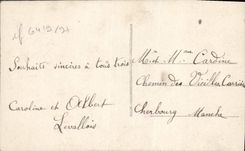 Souhaits sincères à tous trois
Caroline et Albert
Levallois
Mr et Mme Cardine
Chemin des Vieilles Carrières
Cherbourg Manche